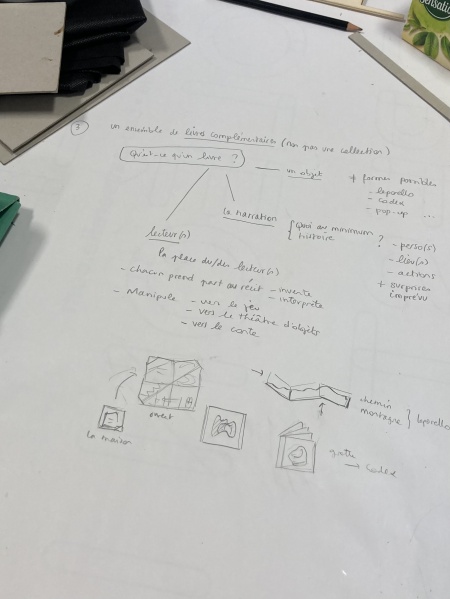 sensatio
3
un ensemble de livres complémentaires (non pas une collection)
Qu'est-ce qu'un livre ?
un objet
+ formes possibles
- leporello
- codex
- pop-up ...
la narration
Quoi au minimum ?
histoire
- perso(s)
- lieu(x)
- actions
+ surprises
imprévu
lecteur(s)
la place du/des lecteur(s)
- chacun prend part au récit - invente
- interprète
- Manipule - vers le jeu
- vers le théâtre d'objets
- vers le conte
la maison
ouvert
chemin
montagne
leporello
grotte
→ codex